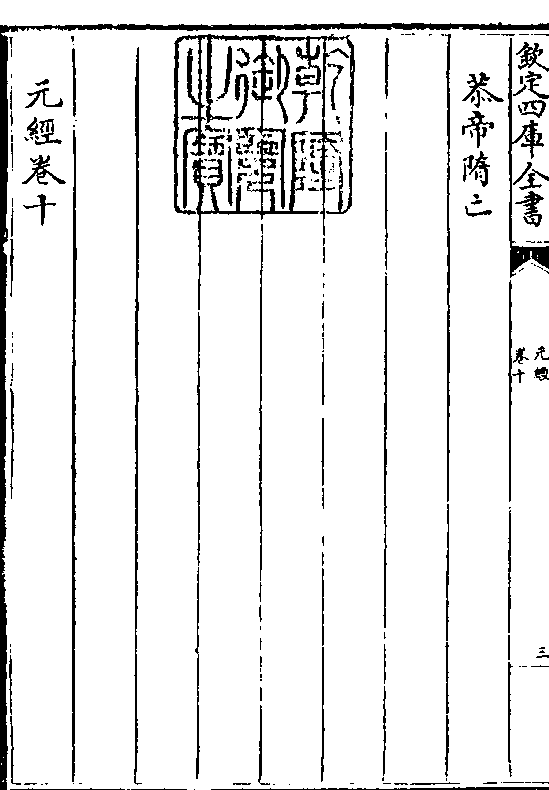 欽定四庫全書
元經
卷十
三
恭帝隋亡
乾隆御覽之寶
元經卷十